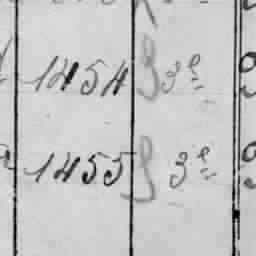 1454 3e
1455 3e